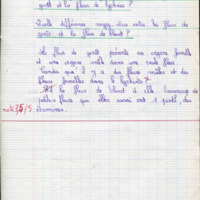 genêt et la fleur de lychnis ?
Quelle différence voyez-vous entre la fleur de
genêt et la fleur de bleuet ?
La fleur de genêt présente un organe femelle
et une organe mâle dans une seule fleur.
Tandis que il y a des fleurs mâles et des
fleurs femelles dans le lychnis.
Et la fleur de bleuet à elle beaucoup de
petites fleurs que elles aussi ont 1 pistil, des
étamines.
note 3,5/5